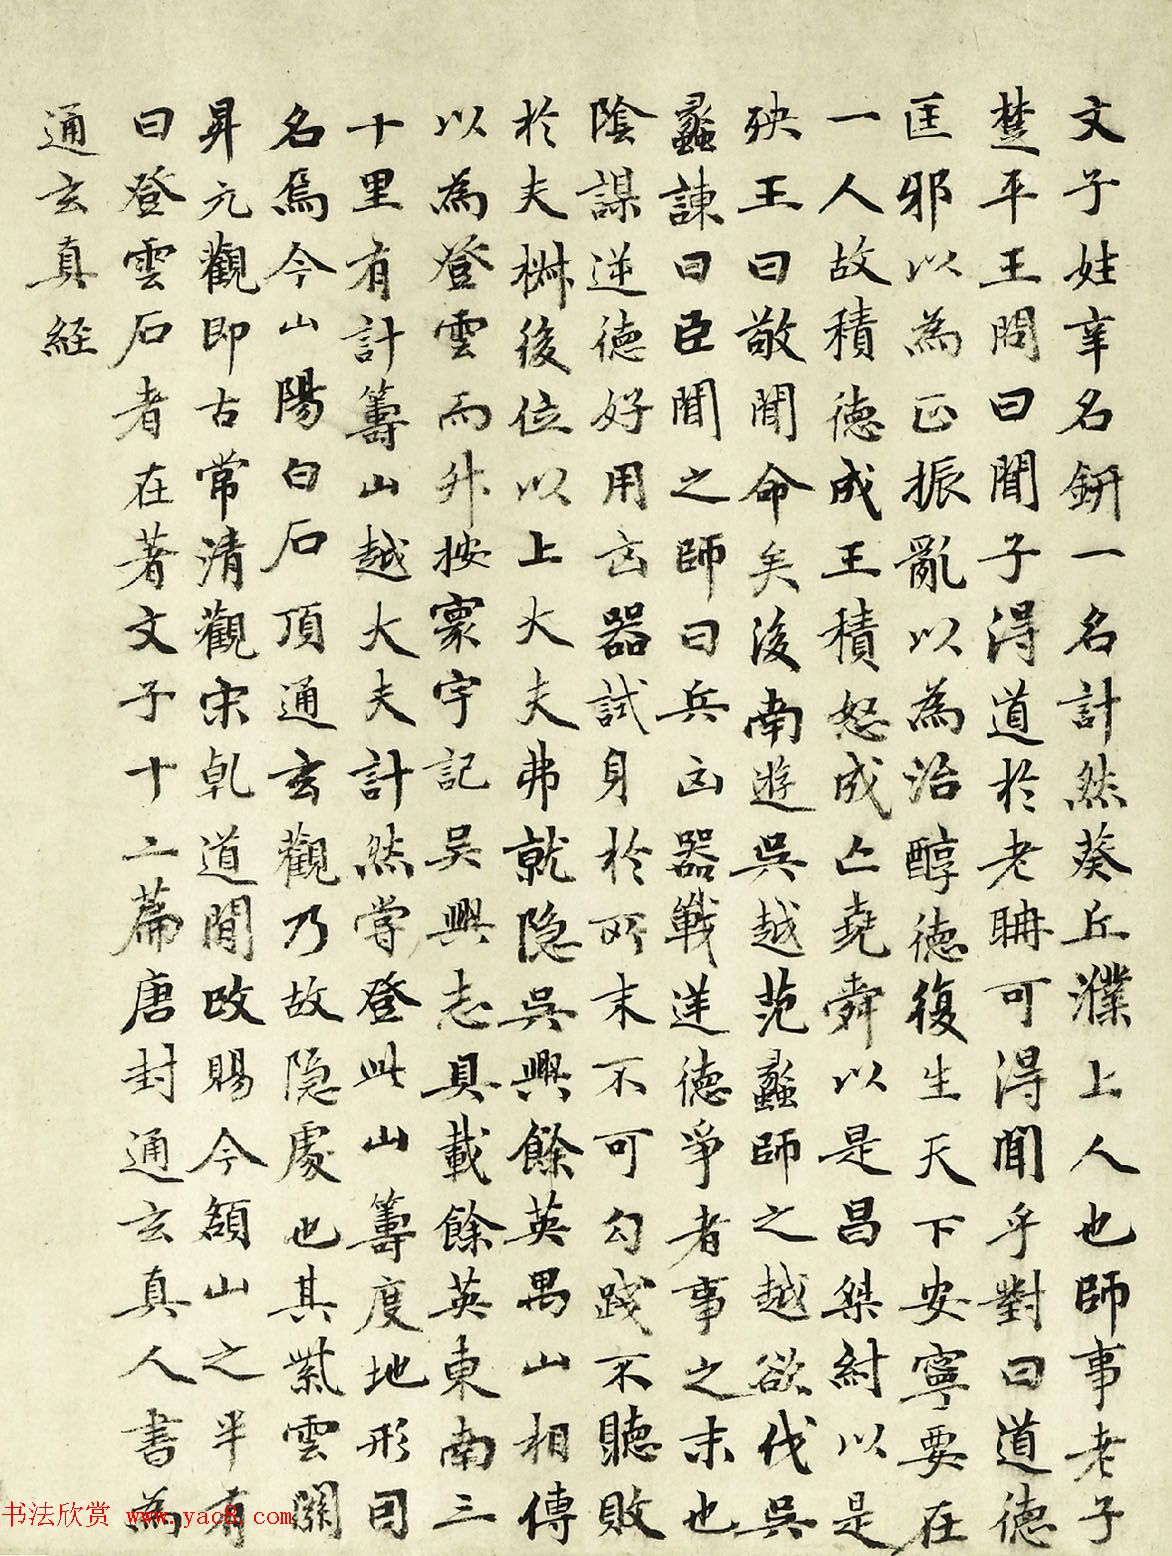 文子姓辛名鈃一名計然葵丘濮上人也師事老子
楚平王問曰聞子得道於老聃可得聞乎對曰道德
匡邪以為正振亂以為治醇德復生天下安寧要在
一人故積德成王積怒成亡堯舜以是昌桀紂以是
殃王曰敬聞命矣後南遊吳越范蠡師之越欲伐吳
蠡諫曰臣聞之師曰兵凶器戰逆德爭者事之末也
陰謀逆德好用凶器試身於所末不可勾踐不聽敗
於夫椒後位以上大夫弗就隐吳興餘英禺山相傳
以為登雲而升按寰宇記吳興志具載餘英東南三
十里有計籌山越大夫計然嘗登此山籌度地形因
名焉今山陽白石頂通玄觀乃故隐處也其紫雲關
昇元觀即古常清觀宋乹道間改賜今額山之半有
曰登雲石者在著文子十二篇唐封通玄真人書為
通玄真經
书法欣赏 www.yac8.com